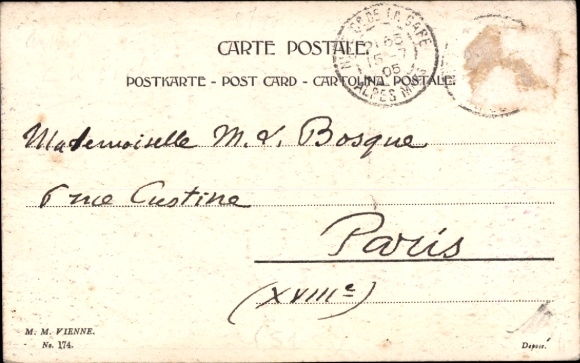 CARTE POSTALE.
POSTKARTE - POST CARD - CARTOLINA POSTALE.
DE LA GARE
05
ALPES
Mademoiselle M. L. Bosque
6 rue Custine
Paris
(XVIIIe)
M. M. VIENNE.
No. 174.
Deposé.